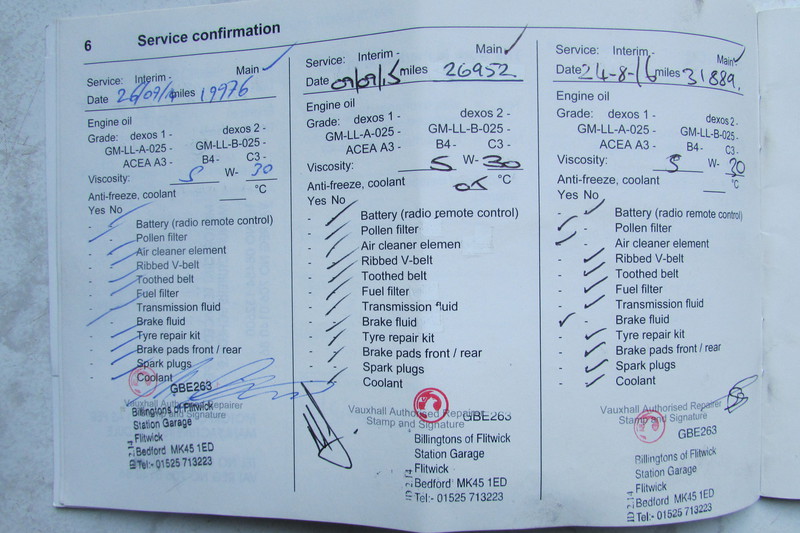 6 Service confirmation
Service: Interim - Main ✓
Date 26/09/14 miles 19976
Engine oil
Grade: dexos 1 - dexos 2 -
GM-LL-A-025 - GM-LL-B-025 -
ACEA A3 - B4 - C3 -
Viscosity: 5 W- 30
Anti-freeze, coolant °C
Yes No
- Battery (radio remote control)
- Pollen filter
- Air cleaner element
- Ribbed V-belt
- Toothed belt
- Fuel filter
- Transmission fluid
- Brake fluid
- Tyre repair kit
- Brake pads front / rear
- Spark plugs
- Coolant
GBE263
Vauxhall Authorised Repairer
Stamp and Signature
Billingtons of Flitwick
Station Garage
Flitwick
Bedford MK45 1ED
Tel:- 01525 713223
Service: Interim - Main ✓
Date 09/09/15 miles 26952
Engine oil
Grade: dexos 1 - dexos 2 -
GM-LL-A-025 - GM-LL-B-025 -
ACEA A3 - B4 - C3 -
Viscosity: 5 W- 30
Anti-freeze, coolant OK °C
Yes No
- Battery (radio remote control)
- Pollen filter
- Air cleaner elemen
- Ribbed V-belt
- Toothed belt
- Fuel filter
- Transmission fluid
- Brake fluid
- Tyre repair kit
- Brake pads front / rear
- Spark plugs
- Coolant
Vauxhall Authorised Repairer
GBE263
Stamp and Signature
Billingtons of Flitwick
Station Garage
Flitwick
Bedford MK45 1ED
Tel:- 01525 713223
Service: Interim - Main ✓
Date 24-8-16 miles 31889.
Engine oil
Grade: dexos 1 - dexos 2 -
GM-LL-A-025 - GM-LL-B-025 -
ACEA A3 - B4 - C3 -
Viscosity: 5 W- 30
Anti-freeze, coolant °C
Yes No
- ✓ Battery (radio remote control)
✓ - Pollen filter
✓ - Air cleaner element
- ✓ Ribbed V-belt
- ✓ Toothed belt
- ✓ Fuel filter
- ✓ Transmission fluid
✓ - Brake fluid
- ✓ Tyre repair kit
- ✓ Brake pads front / rear
- ✓ Spark plugs
- ✓ Coolant
Vauxhall Authorised Repairer
Stamp and Signature
GBE263
Billingtons of Flitwick
Station Garage
Flitwick
Bedford MK45 1ED
Tel:- 01525 713223